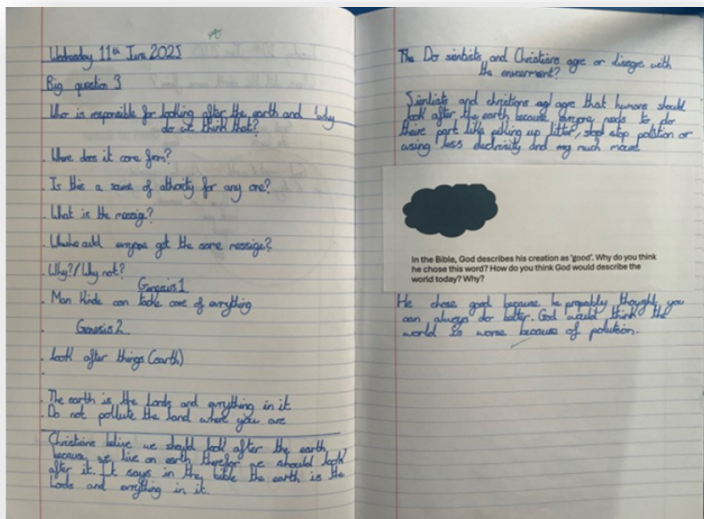 Wednesday 11th June 2025
Big question 3
Who is responsible for looking after the earth and why
do we think that?
. Where does it come from?
. Is this a sourse of athority for any one?
. What is the messige?
. would everyone get the same message?
. Why?/Why not?
Genesis 1
. Man Kinde can take care of everything
. Genesis 2
. look after things (earth)
.
. The earth is the Lords and everything in it
. Do not pollute the land where you are
Christians belive we should look after the earth
because we live on earth therefor we should look
after it. It says in the bible the earth is the
Lords and everything in it.
The Do sientists and Christians agre or disagre with
the enverment?
Sientists and christians agre that humans should
look after the earth because everyone needs to do
there part like piking up litter, stop polution or
using less electricity and much more.
In the Bible, God describes his creation as 'good'. Why do you think
he chose this word? How do you think God would describe the
world today? Why?
He chose good because he propably thought you
can always do better. God would think the
world is worse because of polution.